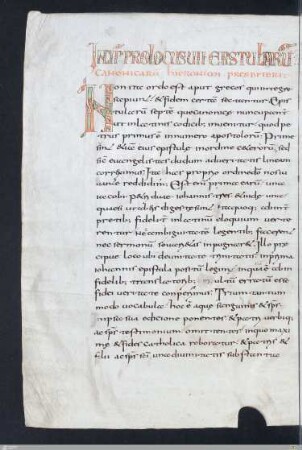 INCIPIT PRELOCUS VII EPISTULARUM
CANONICARUM HIERONIMI PRESBITERI
Non ita ordo est aput grecos qui integre
sapiunt & fidem certam sectantur Epis
tularum septem que canonice nuncupantur
sicut in latinis codicibus inuenitur quod pe
trus primus est in numero apostolorum Prime
sint & iam eius epistule in ordine ceterorum sed
sicut euuangelistas dudum ad ueritatis lineam
correximus Ita has proprio ordine deo nos iu
uante reddidimus Est enim prima earum una ia
cobi petri due iohannis tres & iude una
que si ut ab eis digeste sunt ita quoque ab inter
pretibus fideliter in latinum eloquium uerte
rentur nec ambiguitatem legentibus facerent
nec sermonum se uarietas inpugnaret Illo pre
cipue loco ubi de unitate trinitatis in prima
iohannis epistula positum legimus in qua ab in
fidelibus translatoribus multum erratum esse
fidei ueritate comperimus Trium tantum
modo uocabula hoc est aque sanguinis & sps
in ipsa sua editione ponentes & patris uerbi
ac sps testimonium omittentes in quo maxi
me & fides catholica roboratur & patris &
filii ac sps sci una diuinitatis substantia